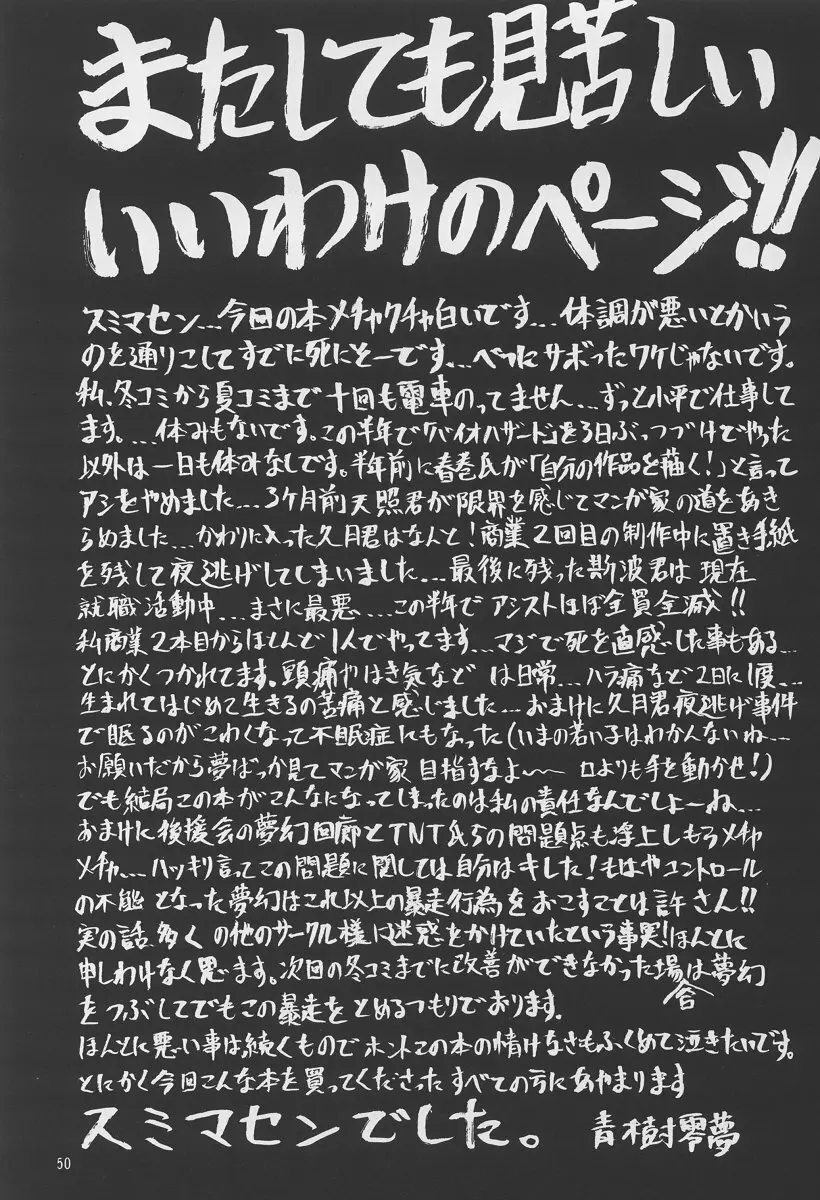 またしても見苦しい
いいわけのページ!!
スミマセン...今回の本メチャクチャ白いです...体調が悪いとかいう
のを通りこしてすでに死にそーです...べつにサボったワケじゃないです。
私、冬コミから夏コミまで十回も電車のってません...ずっと小平で仕事して
ます。...休みもないです。この半年で「バイオハザード」を3日ぶっつづけでやった
以外は一日も休みなしです。半年前に春巻氏が「自分の作品を描く!」と言って
アシをやめました...3ヶ月前天照君が限界を感じてマンガ家の道をあき
らめました...かわりに入った久月君はなんと!商業2回目の制作中に置き手紙
を残して夜逃げしてしまいました...最後に残った斯波君は現在
就職活動中...まさに最悪...この半年でアシストほぼ全員全滅!!
私商業2本目からほとんど1人でやってます...マジで死を直感した事もある...
とにかくつかれてます。頭痛やはき気など は日常...ハラ痛など2日に1度...
生まれてはじめて生きるの苦痛と感じました...おまけに久月君夜逃げ事件
で眠るのがこわくなって不眠症にもなった(いまの若い子はわかんないね...
お願いだから夢ばっか見てマンガ家目指すなよ〜〜口よりも手を動かせ!)
でも結局この本がこんなになってしまったのは私の責任なんでしょーね...
おまけに後援会の夢幻回廊とTNT氏らの問題点も浮上しもうメチャ
メチャ...ハッキリ言ってこの問題に関しては自分はキレた!もはやコントロール
の不能となった夢幻はこれ以上の暴走行為をおこすことは許さん!!
実の話多くの他のサークル様に迷惑をかけていたという事実!ほんとに
申しわけなく思います。次回の冬コミまでに改善ができなかった場合は夢幻
をつぶしてでもこの暴走をとめるつもりでおります。
ほんとに悪い事は続くものでホントこの本の情けなさもふくめて泣きたいです。
とにかく今回こんな本を買ってくださったすべての方にあやまります
スミマセンでした。 青樹零夢
50